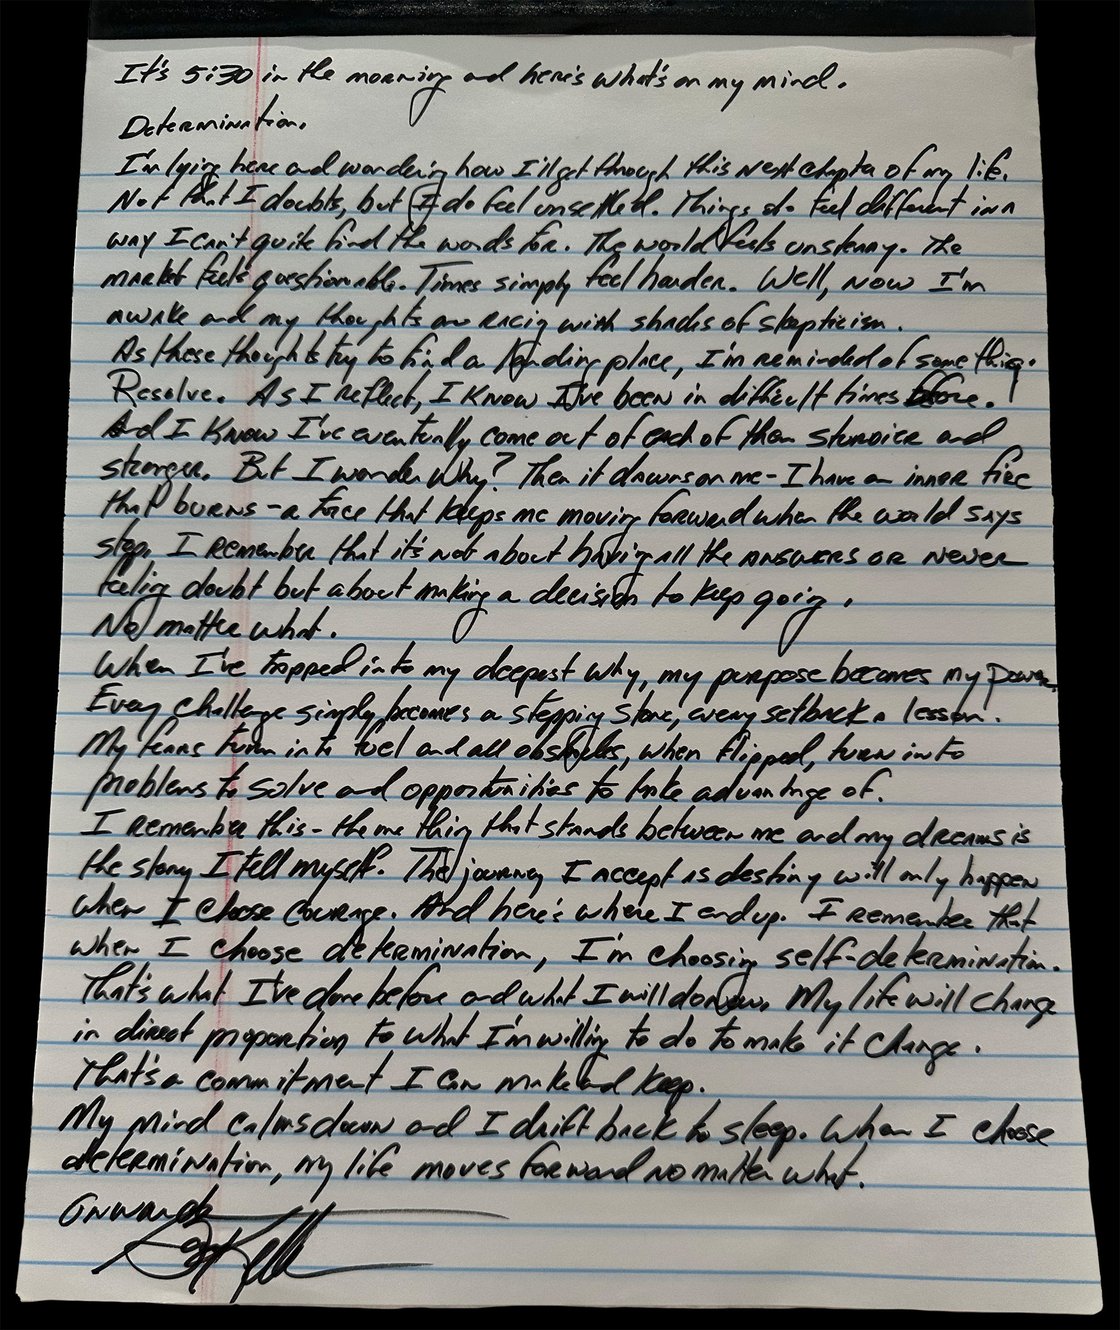 It's 5:30 in the morning and here's what's on my mind.
Determination.
I'm lying here and wondering how I'll get through this next chapter of my life.
Not that I doubts, but I do feel unsettled. Things do feel different in a
way I can't quite find the words for. The world feels unsteady. The
market feels questionable. Times simply feel harder. Well, now I'm
awake and my thoughts are racing with shades of skepticism.
As these thoughts try to find a landing place, I'm reminded of something.
Resolve. As I reflect, I know I've been in difficult times before.
And I know I've eventually come out of each of them sturdier and
stronger. But I wonder why? Then it dawns on me - I have an inner fire
that burns - a force that keeps me moving forward when the world says
stop. I remember that it's not about having all the answers or never
feeling doubt but about making a decision to keep going.
No matter what.
When I've tapped into my deepest why, my purpose becomes my power.
Every challenge simply becomes a stepping stone, every setback a lesson.
My fears turn into fuel and all obstacles, when flipped, turn into
problems to solve and opportunities to take advantage of.
I remember this - the one thing that stands between me and my dreams is
the story I tell myself. The journey I accept as destiny will only happen
when I choose courage. And here's where I end up. I remember that
when I choose determination, I'm choosing self-determination.
That's what I've done before and what I will do now. My life will change
in direct proportion to what I'm willing to do to make it change.
That's a commitment I can make and keep.
My mind calms down and I drift back to sleep. When I choose
determination, my life moves forward no matter what.
Onwards